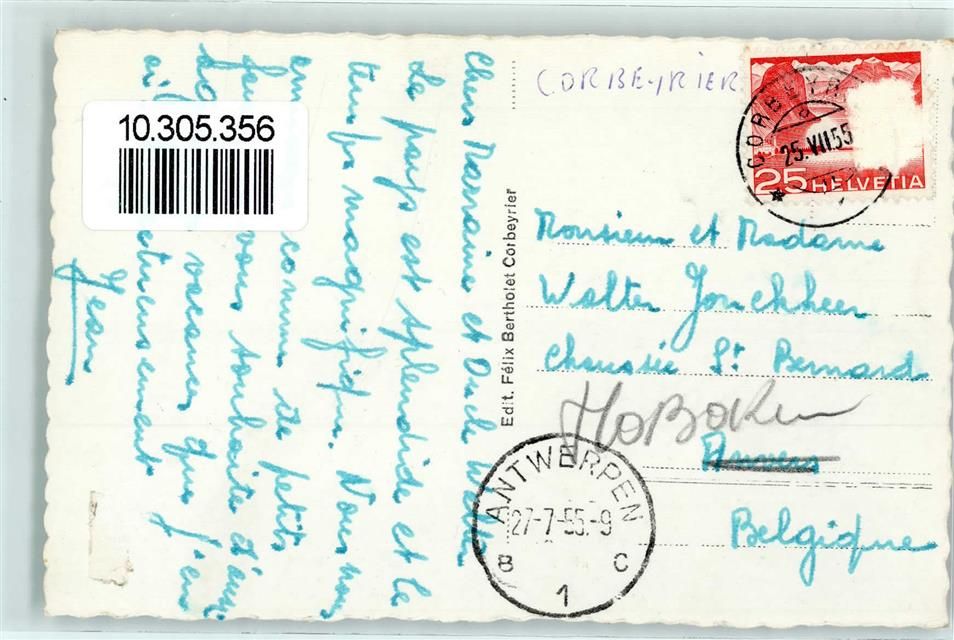 CORBEYRIER
CORBEYR
25.VII.55
25 HELVETIA
10.305.356
Chers Marraine et Oncle Walter
Le pays est splendide et le
temps magnifique. Nous nous
comme de petits
vous souhaite d'aussi
vacances que j'en
Jean
Edit. Félix Bertholet Corbeyrier
Monsieur et Madame
Walter Jonckheer
Chaussée St Bernard
Hoboken
Anvers
Belgique
ANTWERPEN
27-7-55.-9
B C
1